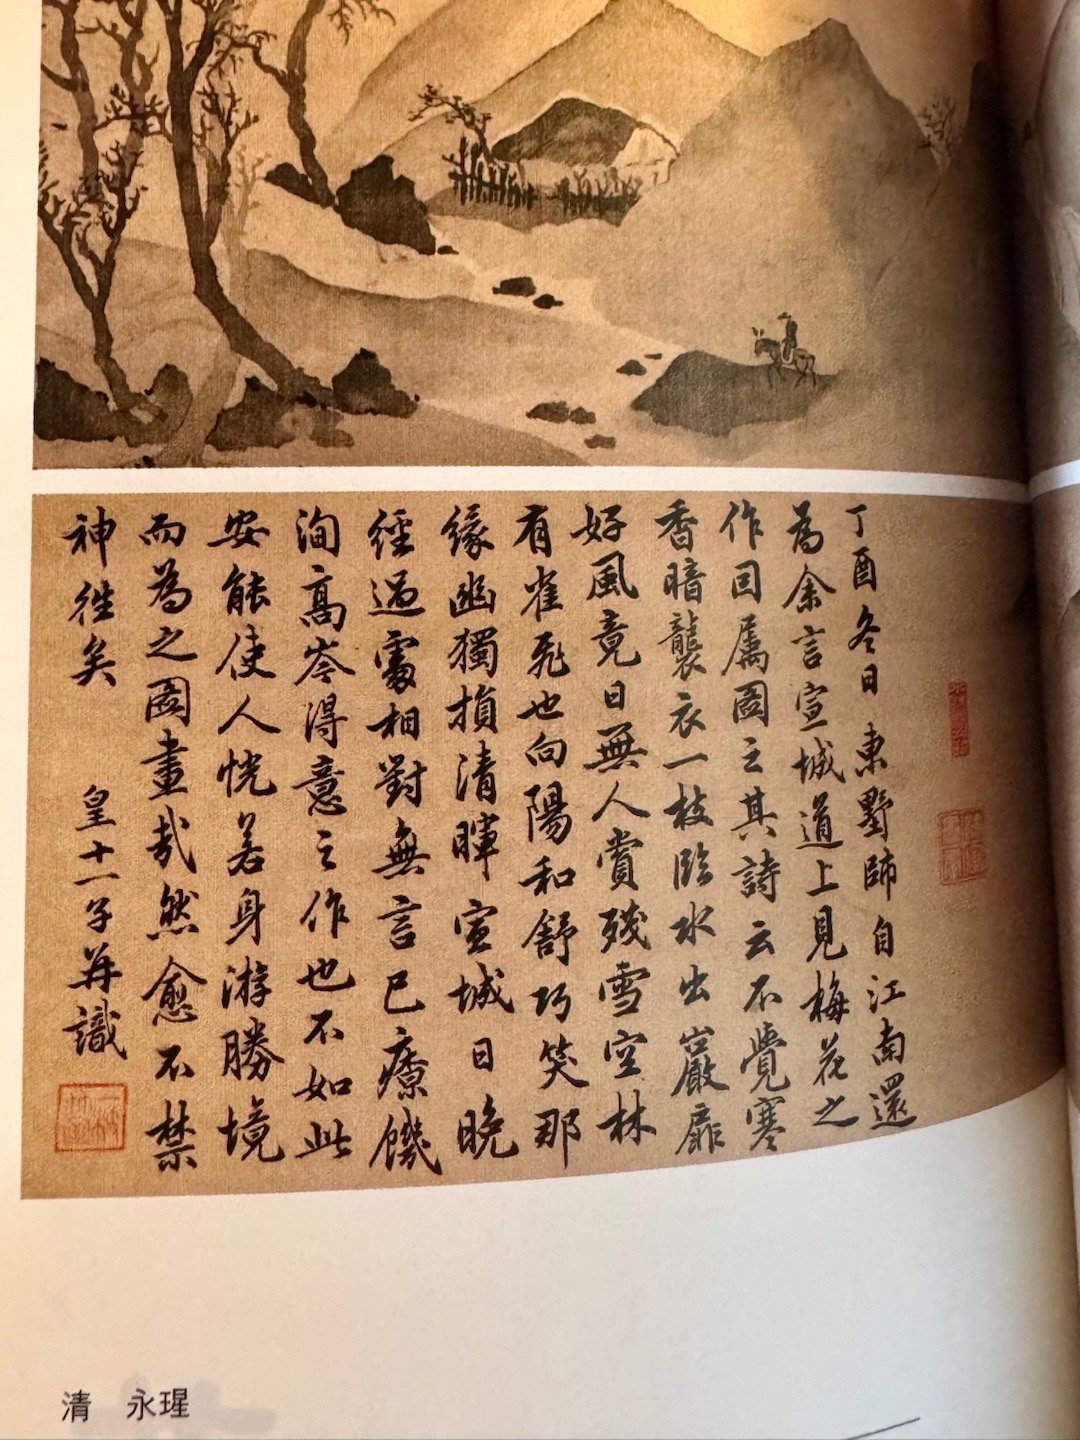 丁酉冬日東墅師自江南還
為余言宣城道上見梅花之
作因屬圖之其詩云不覺寒
香暗襲衣一枝臨水出巖扉
好風竟日無人賞殘雪空林
有雀飛也向陽和舒巧笑那
緣幽獨損清暉宣城日晚
經過處相對無言已療饑
洵高岑得意之作也不如此
安能使人恍若身游勝境
而為之圖畫哉然愈不禁
神往矣 皇十一子并識
清 永瑆